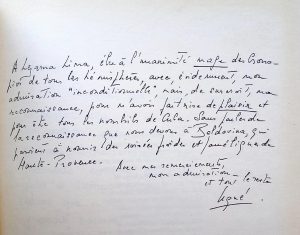 A Lezama Lima, élu à l'unanimité mage des Crono-
piots de tous les hémisphères, avec, évidemment, mon
admiration "inconditionnelle" mais, de surcroît, ma
reconnaissance, pour m'avoir fait rire de plaisir et
pour être tous les nombrils de Cuba. Sans parler de
la reconnaissance que nous devons à Baldovina, qui
parvient à nourrir des poètes et
Haute-Provence.
Avec mes remerciements,
mon admiration
et tout le reste
Ugné.